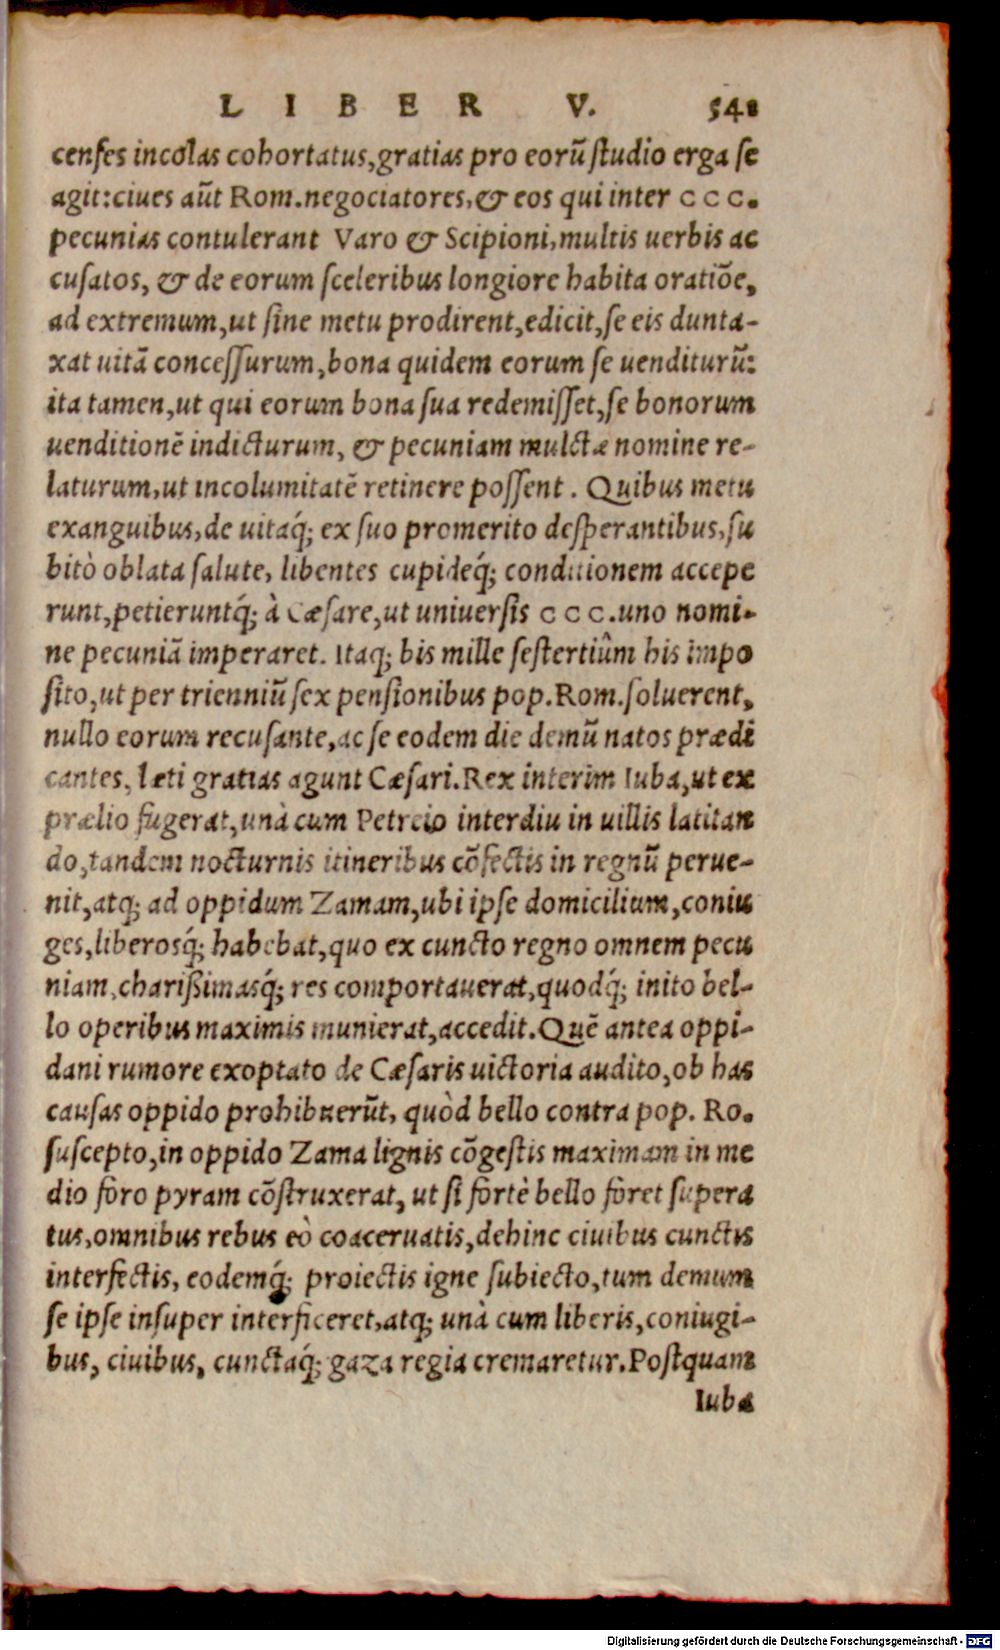 LIBER V. 541
censes incolas cohortatus,gratias pro eorū studio erga se
agit:ciues aūt Rom.negociatores,& eos qui inter CCC.
pecunias contulerant Varo & Scipioni,multis uerbis ac
cusatos, & de eorum sceleribus longiore habita oratiōe,
ad extremum,ut sine metu prodirent,edicit,se eis dunta-
xat uitā concessurum,bona quidem eorum se uenditurū:
ita tamen,ut qui eorum bona sua redemisset,se bonorum
uenditionē indicturum, & pecuniam mulctæ nomine re-
laturum,ut incolumitatē retinere possent. Quibus metu
exanguibus,de uitaq́; ex suo promerito desperantibus,su
bitò oblata salute, libentes cupideq́; conditionem accepe
runt,petieruntq́; à Cæsare,ut uniuersis CCC.uno nomi-
ne pecuniā imperaret. Itaq; bis mille sestertiûm his impo
sito,ut per trienniū sex pensionibus pop.Rom.soluerent,
nullo eorum recusante,ac se eodem die demū natos prædi
cantes, læti gratias agunt Cæsari.Rex interim Iuba,ut ex
prælio fugerat,unà cum Petreio interdiu in uillis latitan
do,tandem nocturnis itineribus cōfectis in regnū perue-
nit,atq; ad oppidum Zamam,ubi ipse domicilium,coniu
ges,liberosq́; habebat,quo ex cuncto regno omnem pecu
niam,charißimasq́; res comportauerat,quodq́; inito bel-
lo operibus maximis munierat,accedit.Quē antea oppi-
dani rumore exoptato de Cæsaris uictoria audito,ob has
causas oppido prohibuerūt, quòd bello contra pop. Ro.
suscepto,in oppido Zama lignis cōgestis maximam in me
dio foro pyram cōstruxerat, ut si fortè bello foret supera
tus,omnibus rebus eò coaceruatis,dehinc ciuibus cunctis
interfectis, eodemq́; proiectis igne subiecto,tum demum
se ipse insuper interficeret,atq; unà cum liberis,coniugi-
bus, ciuibus, cunctaq́; gaza regia cremaretur.Postquam
Iuba
Digitalisierung gefördert durch die Deutsche Forschungsgemeinschaft - DFG